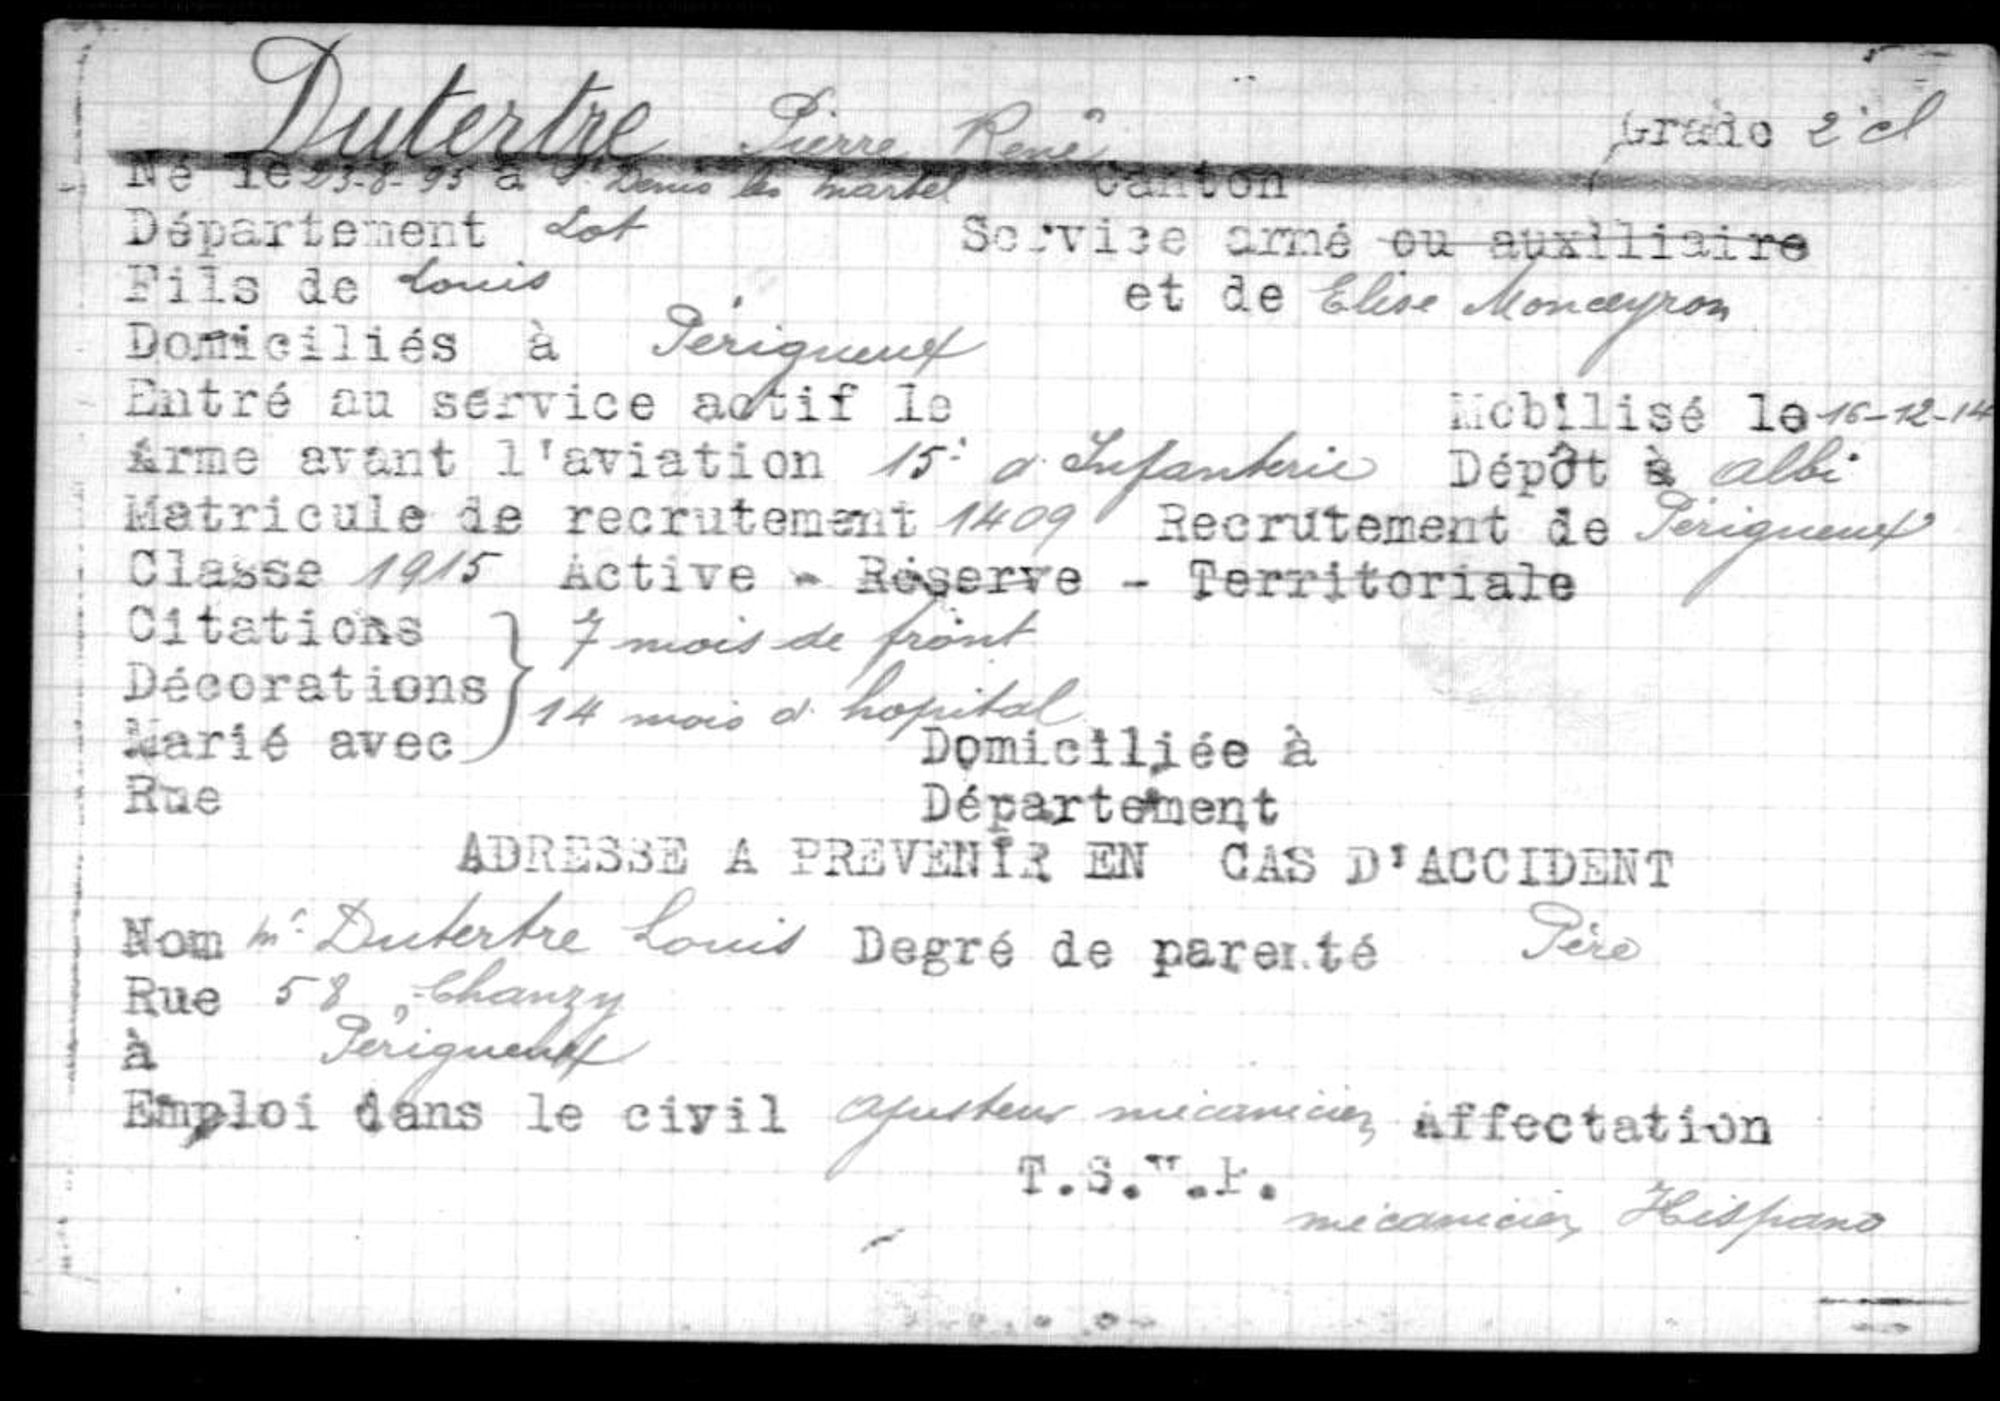 Dutertre Pierre René Grade 2e cl
Né le 23-8-95 à St Denis les Martel Canton
Département Lot Service armé ou auxiliaire
Fils de Louis et de Elise Monceyron
Domiciliés à Périgueux
Entré au service actif le Mobilisé le 16-12-14
Arme avant l'aviation 15e d'Infanterie Dépôt à Albi
Matricule de recrutement 1409 Recrutement de Périgueux
Classe 1915 Active - Réserve - Territoriale
Citations 7 mois de front
Décorations 14 mois d'hopital
Marié avec Domiciliée à
Rue Département
ADRESSE A PREVENIR EN CAS D'ACCIDENT
Nom Mr Dutertre Louis Degré de parenté Père
Rue 58, Chanzy
à Périgueux
Emploi dans le civil ajusteur mécanicien Affectation
T.S.V.P.
mécanicien Hispano